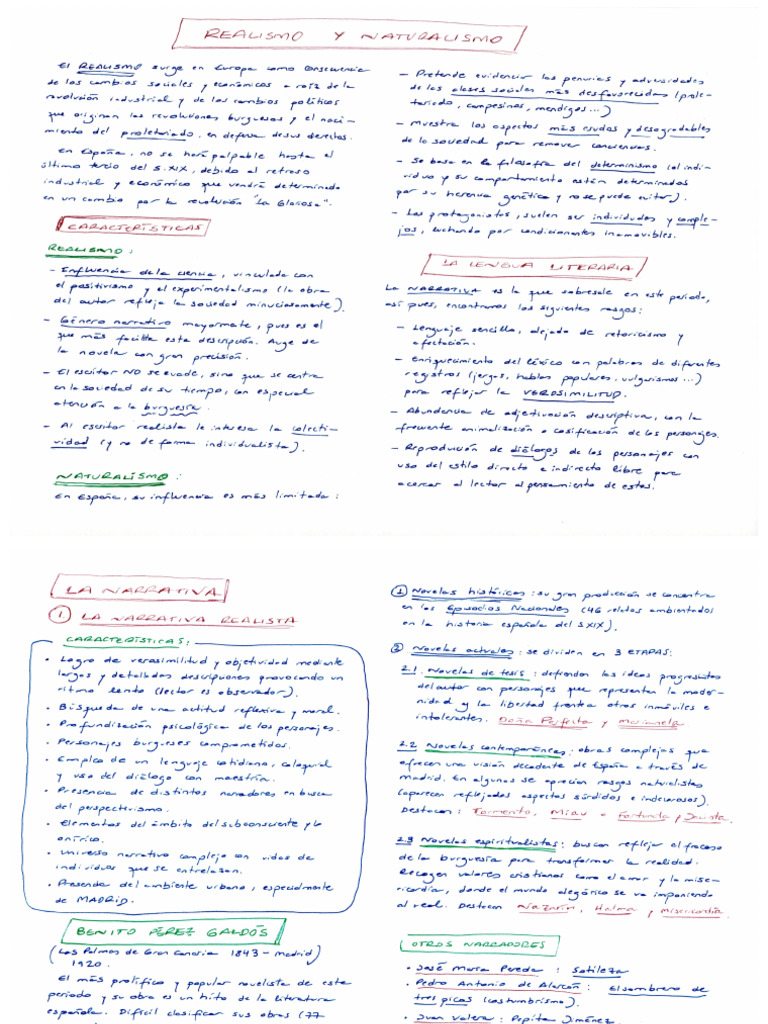 REALISMO Y NATURALISMO
El REALISMO surge en Europa como consecuencia
de los cambios sociales y económicos a raíz de la
revolución industrial y de los cambios políticos
que originan las revoluciones burguesas y el naci-
miento del proletariado, en defensa de sus derechos.
En España, no se hará palpable hasta el
último tercio del S.XIX, debido al retraso
industrial y económico que vendrá determinado
en un cambio por la revolución "La Gloriosa".
CARACTERÍSTICAS
REALISMO:
- Influencia de la ciencia, vinculado con
el positivismo y el experimentalismo (la obra
del autor refleja la sociedad minuciosamente).
- Género narrativo mayormente, pues es el
que más facilita esta descripción. Auge de
la novela con gran precisión.
- El escritor NO se evade, sino que se centra
en la sociedad de su tiempo, con especial
atención a la burguesía.
- Al escritor realista le interesa la colecti-
vidad (y no de forma individualista).
NATURALISMO:
En España, su influencia es más limitada:
- Pretende evidenciar las penurias y adversidades
de las clases sociales más desfavorecidas (prole-
tariado, campesinos, mendigos...)
- Muestra los aspectos más crudos y desagradables
de la sociedad para remover conciencias.
- Se basa en la filosofía del determinismo (el indi-
viduo y su comportamiento están determinados
por su herencia genética y no se puede evitar).
- Los protagonistas, suelen ser individuos y comple-
jos, luchando por condicionantes inamovibles.
LA LENGUA LITERARIA
La NARRATIVA es la que sobresale en este periodo,
así pues, encontramos los siguientes rasgos:
- Lenguaje sencillo, alejado de retoricismo y
afectación.
- Enriquecimiento del léxico con palabras de diferentes
registros (jergas, hablas populares, vulgarismos...)
para reflejar la VEROSIMILITUD.
- Abundancia de adjetivación descriptiva, con la
frecuente animalización o cosificación de los personajes.
- Reproducción de diálogos de los personajes con
uso del estilo directo e indirecto libre para
acercar al lector al pensamiento de estos.
LA NARRATIVA
1 LA NARRATIVA REALISTA
CARACTERÍSTICAS:
• Logro de verosimilitud y objetividad mediante
largas y detalladas descripciones provocando un
ritmo lento (lector es observador).
• Búsqueda de una actitud reflexiva y moral.
• Profundización psicológica de los personajes.
• Personajes burgueses comprometidos.
• Empleo de un lenguaje cotidiano, coloquial
y uso del diálogo con maestría.
• Presencia de distintos narradores en busca
del perspectivismo.
• Elementos del ámbito del subconsciente y lo
onírico.
• Universo narrativo complejo con vidas de
individuos que se entrelazan.
• Presencia del ambiente urbano, especialmente
de MADRID.
BENITO PÉREZ GALDÓS
(Las Palmas de Gran Canaria 1843 - Madrid)
1920.
El más prolífico y popular novelista de este
periodo y su obra es un hito de la literatura
española. Difícil clasificar sus obras (77
1 Novelas históricas: su gran producción se concentra
en los Episodios Nacionales (46 relatos ambientados
en la historia española del S.XIX).
2 Novelas actuales: se dividen en 3 ETAPAS:
2.1. Novelas de tesis: defienden las ideas progresistas
del autor con personajes que representan la moder-
nidad y la libertad frente a otros inmóviles e
intolerantes. Doña Perfecta y Marianela
2.2 Novelas contemporáneas: obras complejas que
ofrecen una visión decadente de España a través de
Madrid. En algunas se aprecian rasgos naturalistas
(aparecen reflejados aspectos sórdidos e indecorosos).
Destacan: Tormento, Miau o Fortunata y Jacinta.
2.3 Novelas espiritualistas: buscan reflejar el fracaso
de la burguesía para transformar la realidad.
Recogen valores cristianos como el amor y la mise-
ricordia, donde el mundo alegórico se va imponiendo
al real. Destacan Nazarín, Halma y Misericordia
OTROS NARRADORES
• José María Pereda: Sotileza
• Pedro Antonio de Alarcón: El sombrero de
tres picos (costumbrismo).
• Juan Valera: Pepita Jiménez.